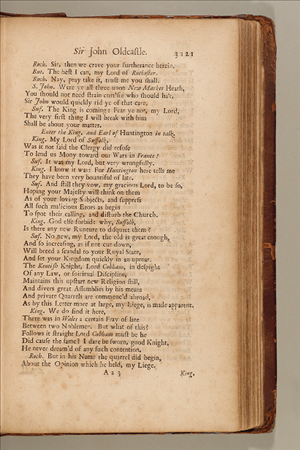 Sir John Oldcastle. 3121
Roch. Sir, then we crave your furtherance herein.
Roc. The best I can, my Lord of Rochester.
Roch. Nay, pray take it, trust me you shall.
S. John. Were ye all three upon New Market Heath,
You should not need strain curt'sie who should ha't,
Sir John would quickly rid ye of that care.
Suf. The King is coming: Fear ye not, my Lord,
The very first thing I will break with him
Shall be about your matter.
Enter the King, and Earl of Huntington in talk.
King. My Lord of Suffolk,
Was it not said the Clergy did refuse
To lend us Mony toward our Wars in France?
Suf. It was my Lord, but very wrongfully.
King. I know it was: For Huntington here tells me
They have been very bountiful of late.
Suf. And still they vow, my gracious Lord, to be so,
Hoping your Majesty will think on them
As of your loving Subjects, and suppress
All such malicious Errors as begin
To spot their calling, and disturb the Church.
King. God else forbid: why, Suffolk,
Is there any new Rupture to disquiet them?
Suf. No new, my Lord, the old is great enough,
And so increasing, as if not cut down,
Will breed a scandal to your Royal State,
And set your Kingdom quickly in an uproar.
The Kentish Knight, Lord Cobham, in despight
Of any Law, or spiritual Discipline,
Maintains this upstart new Religion still,
And divers great Assemblies by his means
And private Quarrels are commenc'd abroad,
As by this Letter more at large, my Liege, is made apparent.
King. We do find it here,
There was in Wales a certain Fray of late
Between two Noblemen. But what of this?
Follows it straight Lord Cobham must be he
Did cause the same? I dare be sworn, good Knight,
He never dream'd of any such contention.
Roch. But in his Name the quarrel did begin,
About the Opinion which he held, my Liege.
A a 3 King.